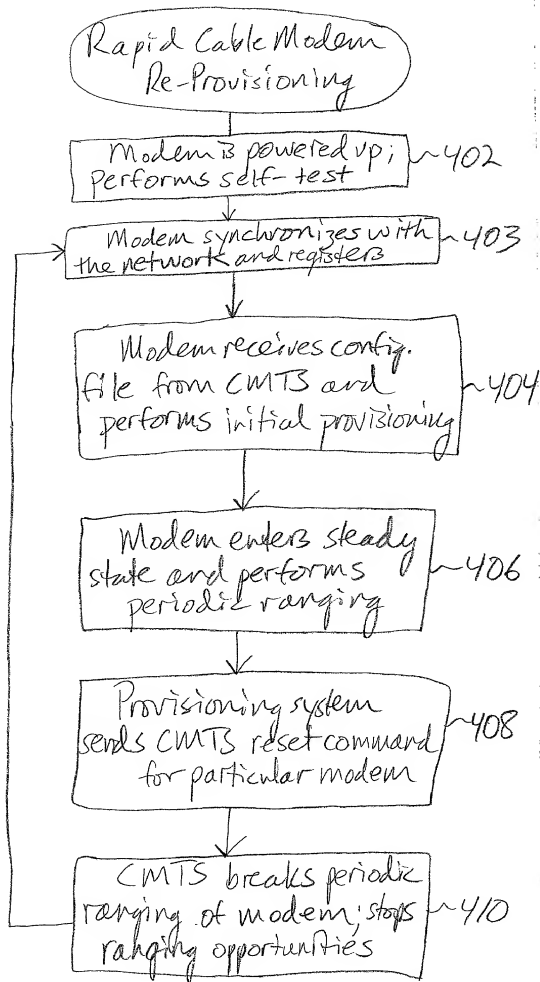 Rapid Cable Modem
Re-Provisioning
Modem is powered up;
performs self-test
402
Modem synchronizes with
the network and registers
403
Modem receives config.
file from CMTS and
performs initial provisioning
404
Modem enters steady
state and performs
periodic ranging
406
Provisioning system
sends CMTS reset command
for particular modem
408
CMTS breaks periodic
ranging of modem; stops
ranging opportunities
410